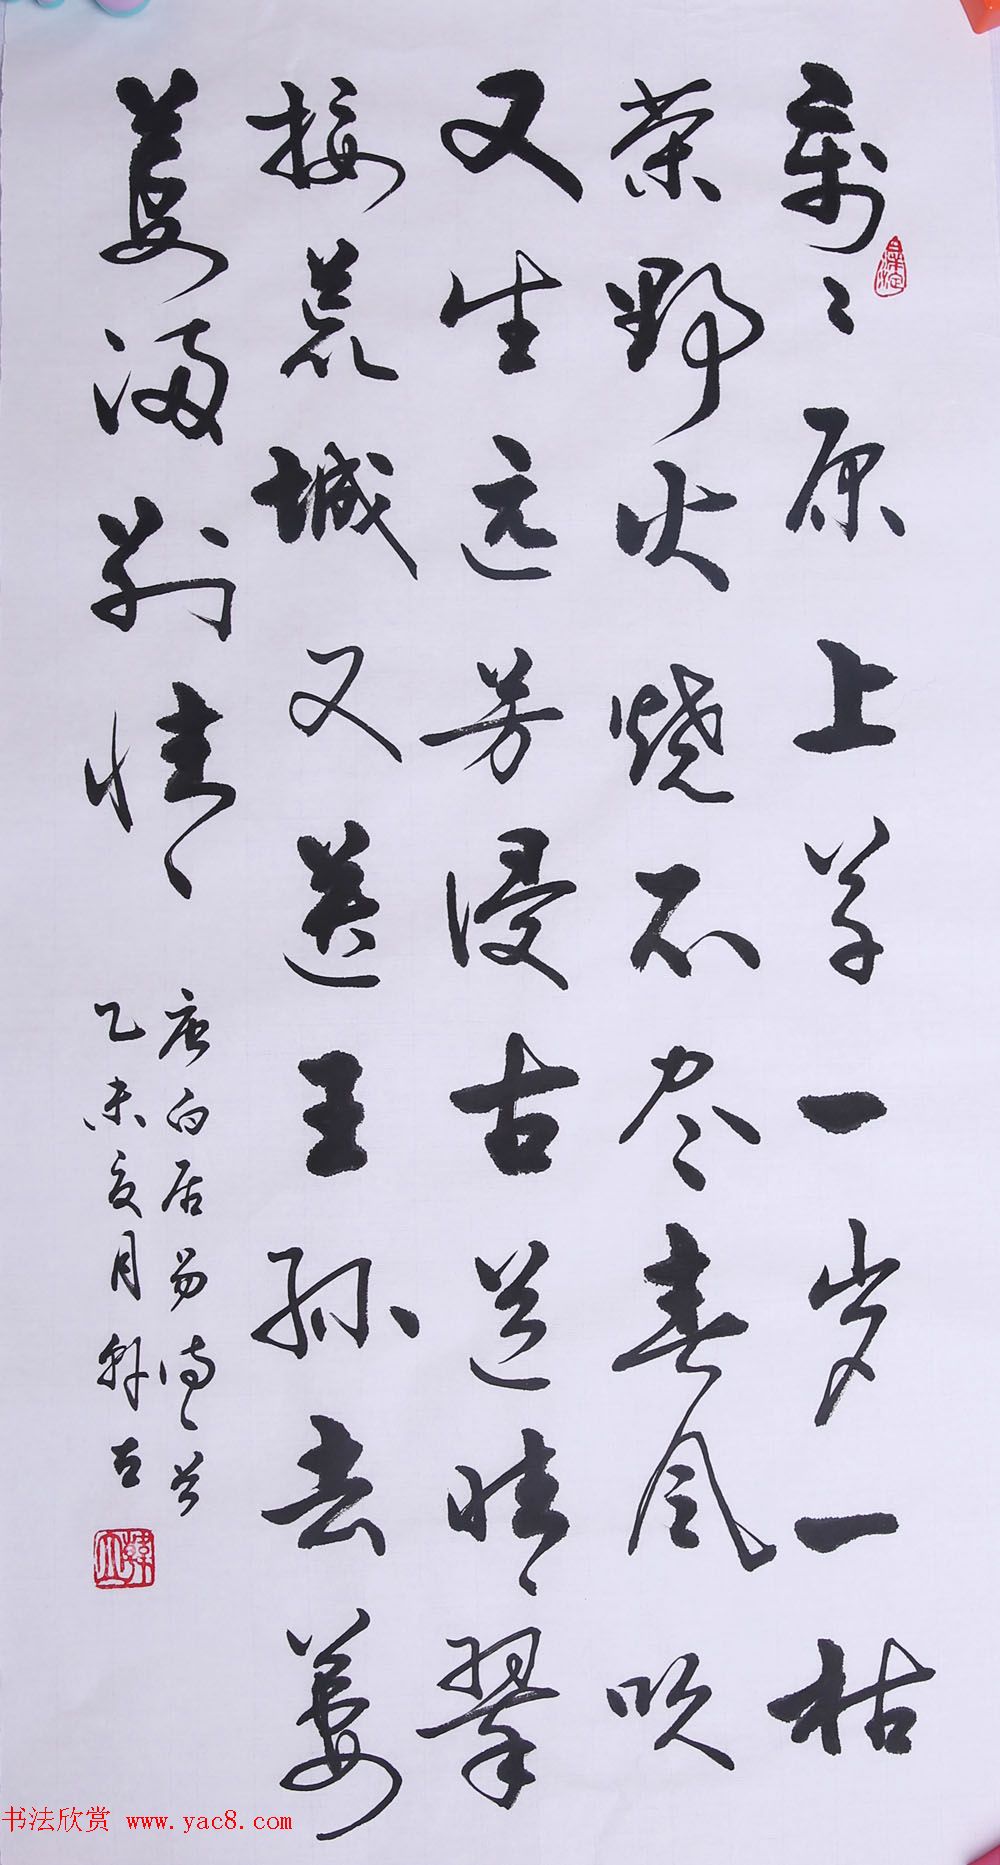 离离原上草一岁一枯
荣野火烧不尽春风吹
又生远芳侵古道晴翠
接荒城又送王孙去萋
萋满别情
唐白居易诗一首
乙未夏月韩
书法欣赏 www.yac8.com